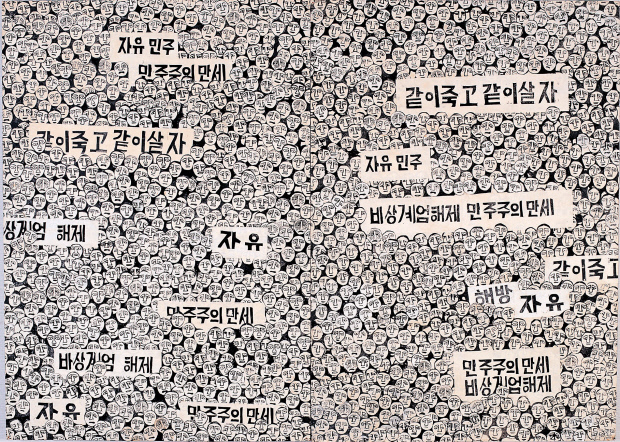 자유 민주
민주주의 만세
같이죽고 같이살자
상계엄 해제
자유
민주주의 만세
비상계엄 해제
자유
민주주의 만세
같이죽고 같이살자
자유 민주
비상계엄해제 민주주의 만세
같이죽고
해방 자유
민주주의 만세
비상계엄해제